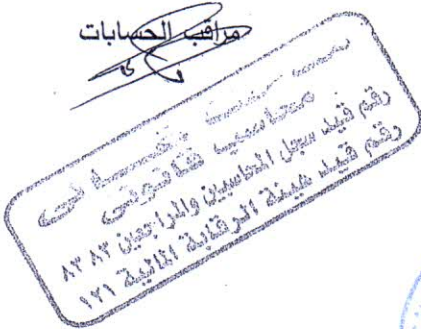 مراقب الحسابات
محاسب قانونى
رقم قيد سجل المحاسبين والمراجعين ٨٣٨٣
رقم قيد هيئة الرقابة المالية ١٢١